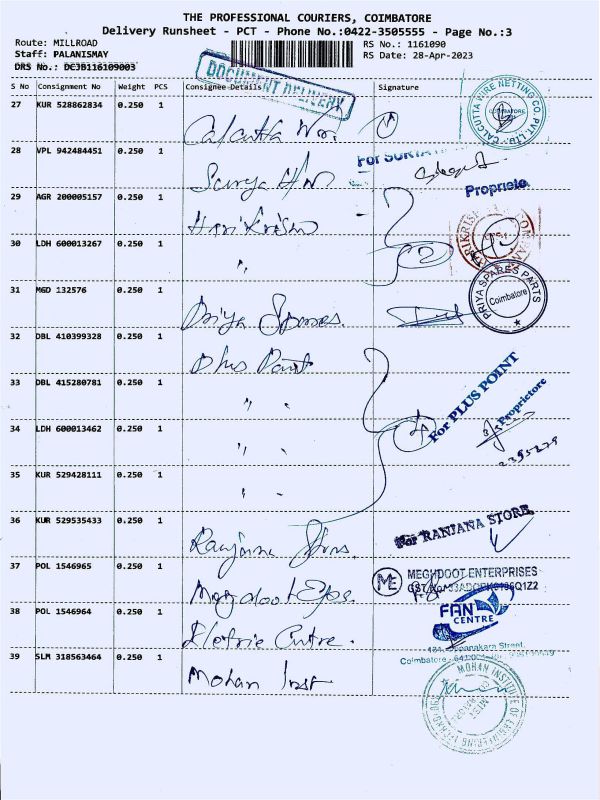 THE PROFESSIONAL COURIERS, COIMBATORE
Delivery Runsheet - PCT - Phone No.:0422-3505555 - Page No.:3
Route: MILLROAD RS No.: 1161090
Staff: PALANISMAY RS Date: 28-Apr-2023
DRS No.: DCJB116109003
DOCUMENT DELIVERY
S No Consignment No Weight PCS Consignee Details Signature
27 KUR 528862834 0.250 1 Calcutta
CALCUTTA WIRE NETTING CO. PVT. LTD.
COIMBATORE
28 VPL 942484451 0.250 1 Surya
For SURYA
29 AGR 200005157 0.250 1 Hari Krishna
Proprieto
30 LDH 600013267 0.250 1 "
2
31 MGD 132576 0.250 1 Priya Spares.
PRIYA SPARES PARTS
Coimbatore
32 DBL 410399328 0.250 1 Plus Point
33 DBL 415280781 0.250 1 " "
For PLUS POINT
Proprietore
34 LDH 600013462 0.250 1 " "
4
2395229
35 KUR 529428111 0.250 1 " "
36 KUR 529535433 0.250 1 Ranjana
For RANJANA STORE
37 POL 1546965 0.250 1
ME MEGHDOOT ENTERPRISES
38 POL 1546964 0.250 1 Eletric Centre.
FAN CENTRE
Street,
Coimbatore
39 SLM 318563464 0.250 1 Mohan Inst
MOHAN INSTITUTE OF ENGINEERING TECHNOLOGY